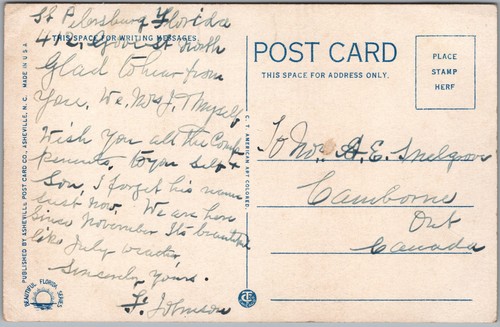 St Petersburg Florida
THIS SPACE FOR WRITING MESSAGES
Glad to hear from
You. We Mrs J. & Myself
Wish You all the Com-
pements, to you Self &
Son, I forget his name
Just now. We are here
Since November Its beautiful
like July weather
Sincerely Yours.
J. Johnson
POST CARD
THIS SPACE FOR ADDRESS ONLY.
PLACE
STAMP
HERE
To Mr. A. E. Snelgrove
Camborne
Ont
Canada
PUBLISHED BY ASHEVILLE POST CARD CO., ASHEVILLE, N. C. MADE IN U.S.A.
C. T. AMERICAN ART COLORED
BEAUTIFUL FLORIDA SERIES